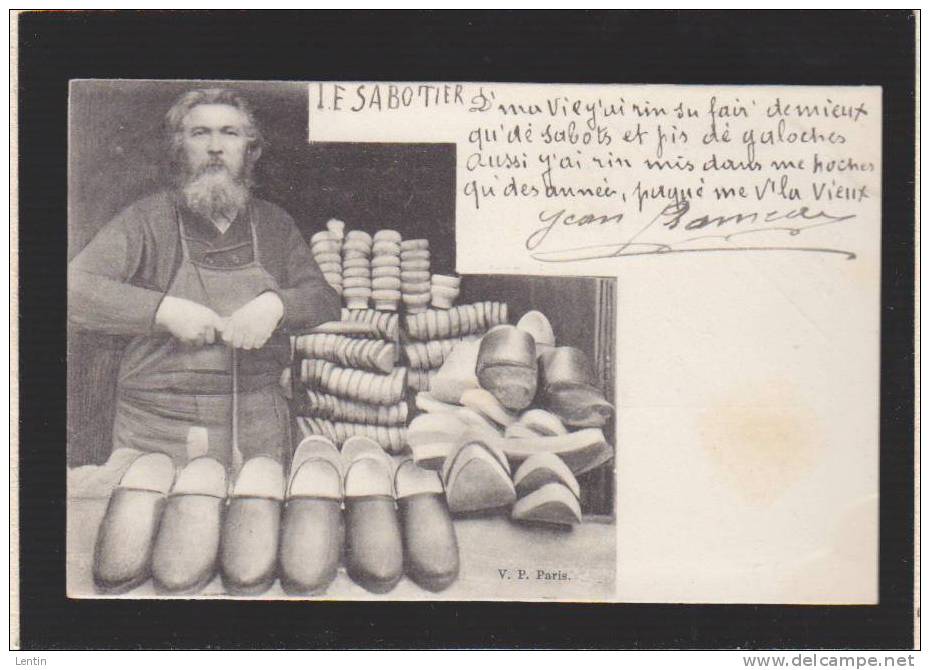 LE SABOTIER
D'ma Vie y'ai rin su fair' de mieux
qu'dé sabots et pis dé galoches
aussi y'ai rin mis dans me poches
qu'des année, paqué me V'la Vieux
Jean Rameau
V. P. Paris.
Lentin
www.delcampe.net